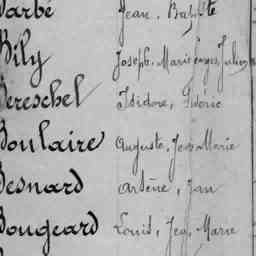 Barbé Jean, Baptiste
Bily Joseph, Marie, Julien
Bereschel Isidore,
Boulaire Auguste, Jean Marie
Besnard Arsène, Jean
Bougeard Louis, Marie